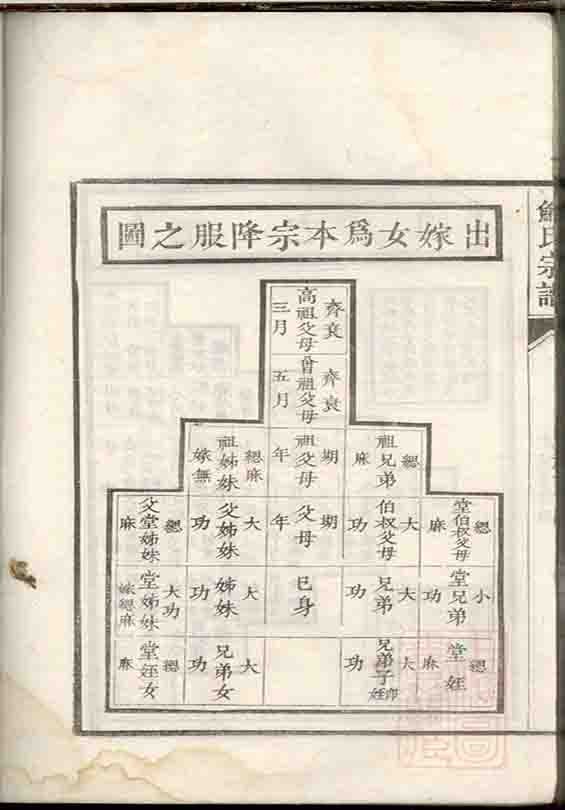 出嫁女為本宗降服之圖
齊衰 高祖父母 三月
齊衰 曾祖父母 五月
緦麻 祖兄弟
期年 祖父母
緦麻 祖姊妹 嫁無
緦麻 堂伯叔父母
大功 伯叔父母
期年 父母
大功 父姊妹
緦麻 父堂姊妹
小功 堂兄弟
大功 兄弟
己身
大功 姊妹
大功 堂姊妹 嫁緦麻
緦麻 堂姪
大功 兄弟子 即姪
大功 兄弟女
緦麻 堂姪女
氏宗譜